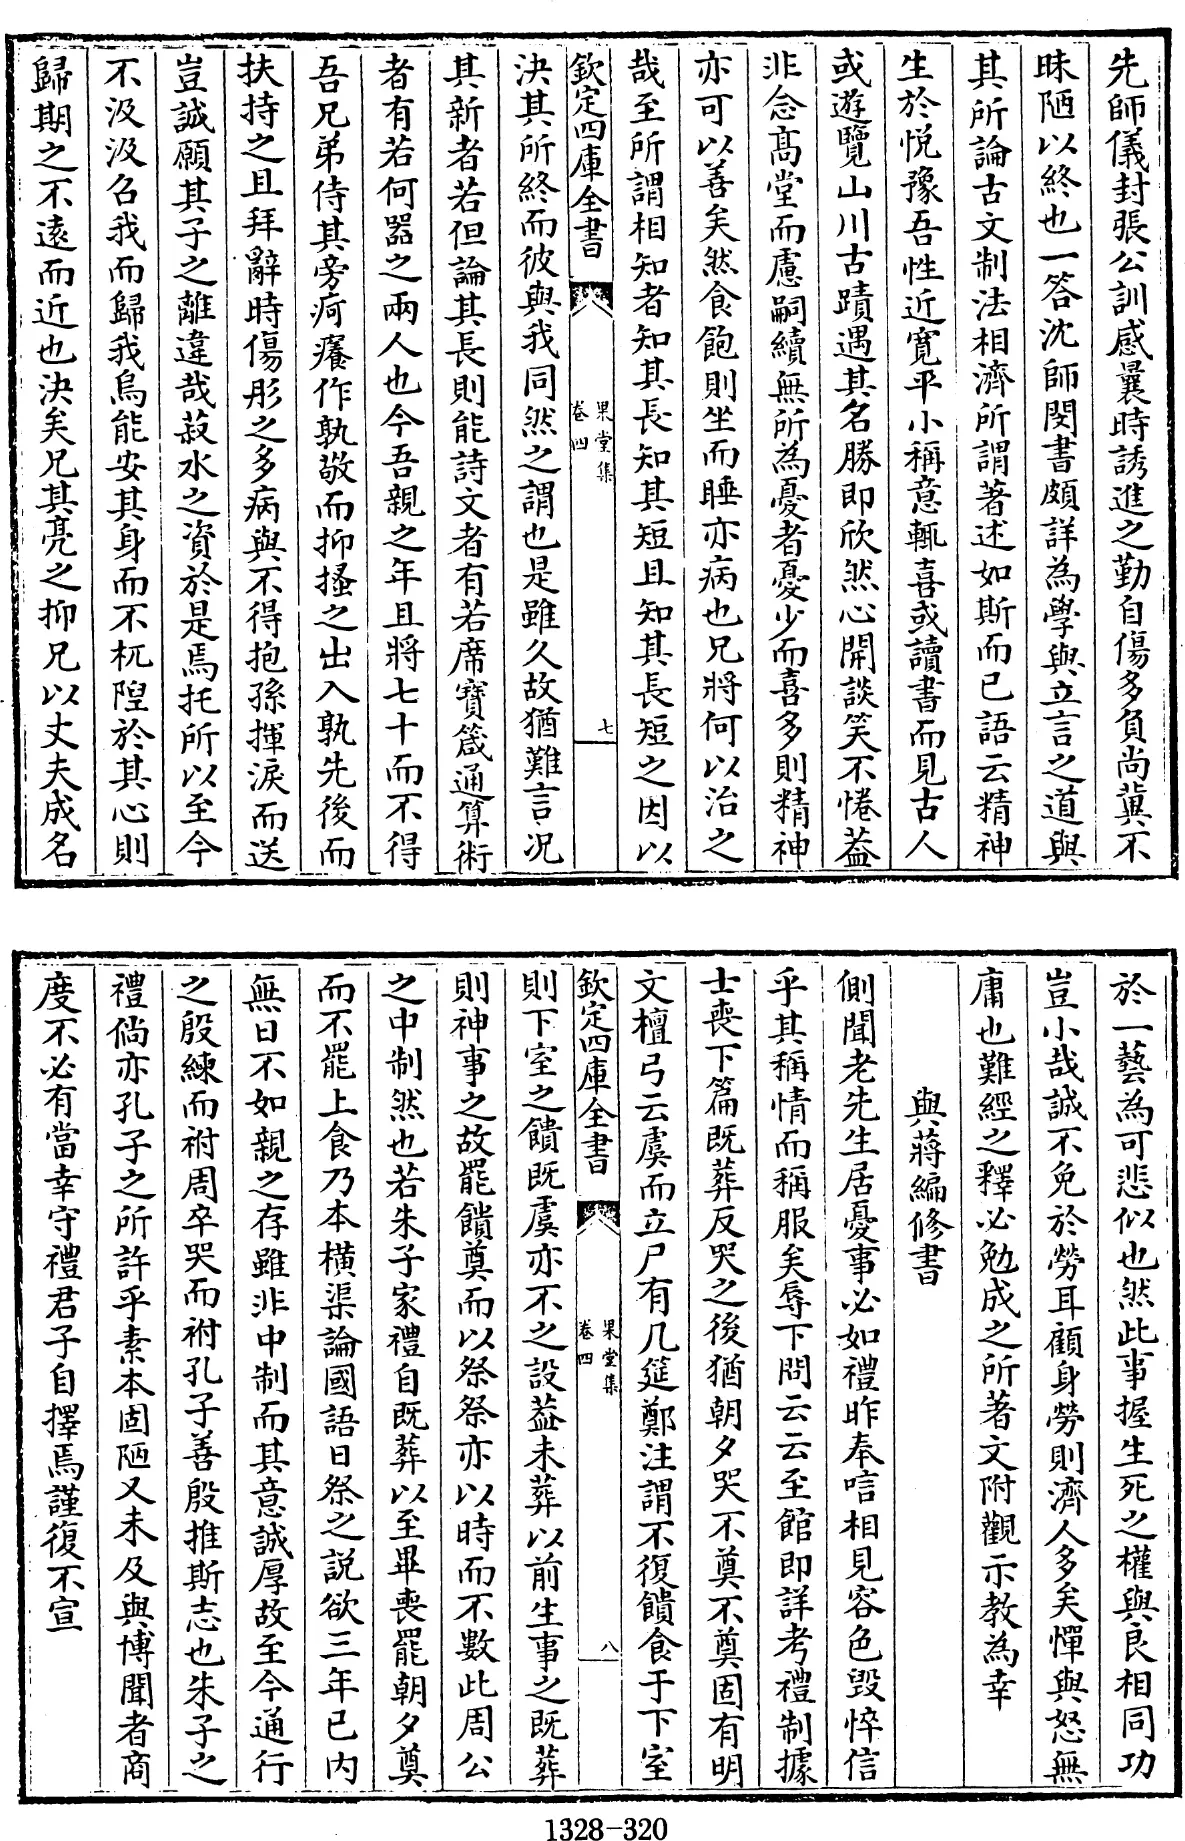 先師儀封張公訓感曩時誘進之勤自傷多負尚冀不
昧陋以終也一答沈師閔書頗詳為學與立言之道與
其所論古文制法相濟所謂著述如斯而已語云精神
生於悦豫吾性近寛平小稱意輒喜或讀書而見古人
或遊覽山川古蹟遇其名勝即欣然心開談笑不惓蓋
非念髙堂而慮嗣續無所為憂者憂少而喜多則精神
亦可以善矣然食飽則坐而睡亦病也兄將何以治之
哉至所謂相知者知其長知其短且知其長短之因以
欽定四庫全書
果堂集
卷四
七
決其所終而彼與我同然之謂也是雖久故猶難言况
其新者若但論其長則能詩文者有若席寶箴通算術
者有若何器之兩人也今吾親之年且將七十而不得
吾兄弟侍其旁疴癢作孰敬而抑搔之出入孰先後而
扶持之且拜辭時傷彤之多病與不得抱孫揮涙而送
豈誠願其子之離違哉菽水之資於是焉托所以至今
不汲汲召我而歸我烏能安其身而不杌隉於其心則
歸期之不遠而近也決矣兄其亮之抑兄以丈夫成名
於一藝為可悲似也然此事握生死之權與良相同功
豈小哉誠不免於勞耳顧身勞則濟人多矣憚與怒無
庸也難經之釋必勉成之所著文附觀示教為幸
與蔣編修書
側聞老先生居憂事必如禮昨奉唁相見容色毀悴信
乎其稱情而稱服矣辱下問云云至館即詳考禮制據
士喪下篇既葬反哭之後猶朝夕哭不奠不奠固有明
文檀弓云虞而立尸有几筵鄭注謂不復饋食于下室
欽定四庫全書
果堂集
卷四
八
則下室之饋既虞亦不之設蓋未葬以前生事之既葬
則神事之故罷饋奠而以祭祭亦以時而不數此周公
之中制然也若朱子家禮自既葬以至畢喪罷朝夕奠
而不罷上食乃本横渠論國語日祭之説欲三年已内
無日不如親之存雖非中制而其意誠厚故至今通行
之殷練而祔周卒哭而祔孔子善殷推斯志也朱子之
禮倘亦孔子之所許乎素本固陋又未及與博聞者商
度不必有當幸守禮君子自擇焉謹復不宣
1328-320